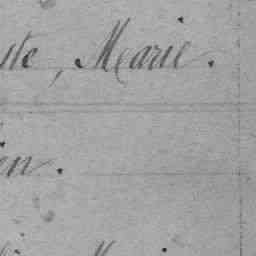 ste, Marie.
en.